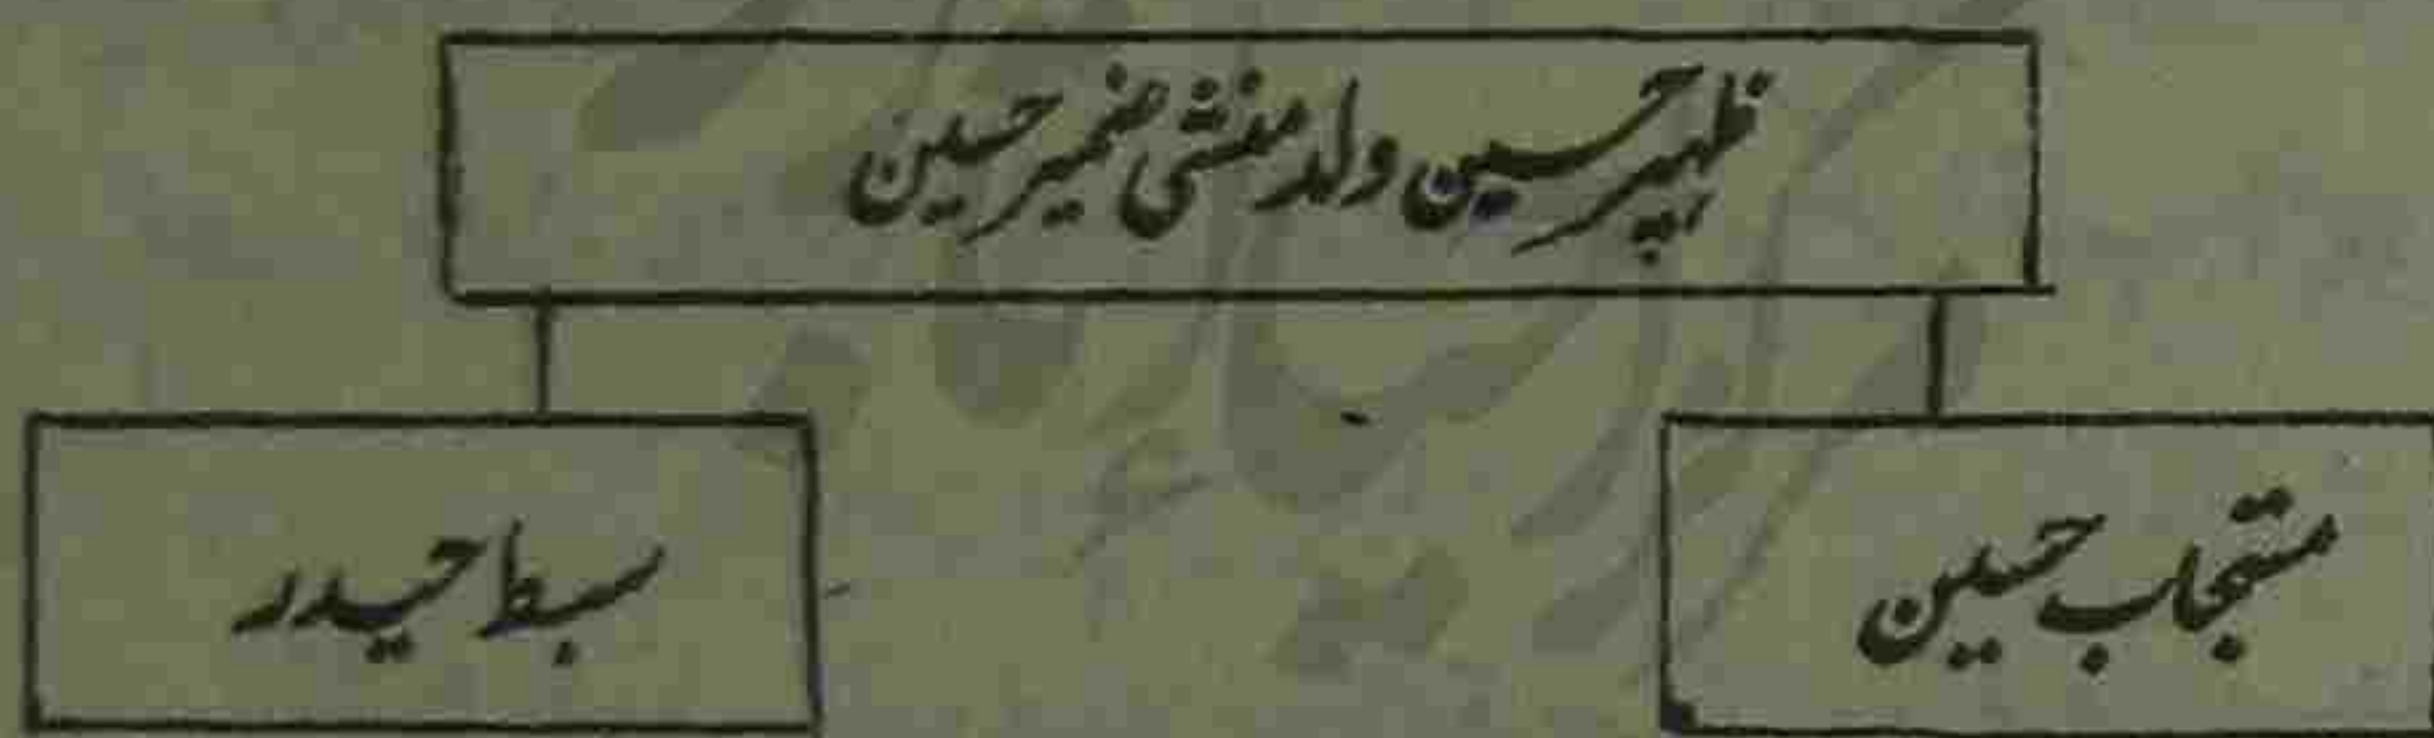 ظہیر حسین ولد منشی ضمیر حسین
مستجاب حسین
سبط حیدر